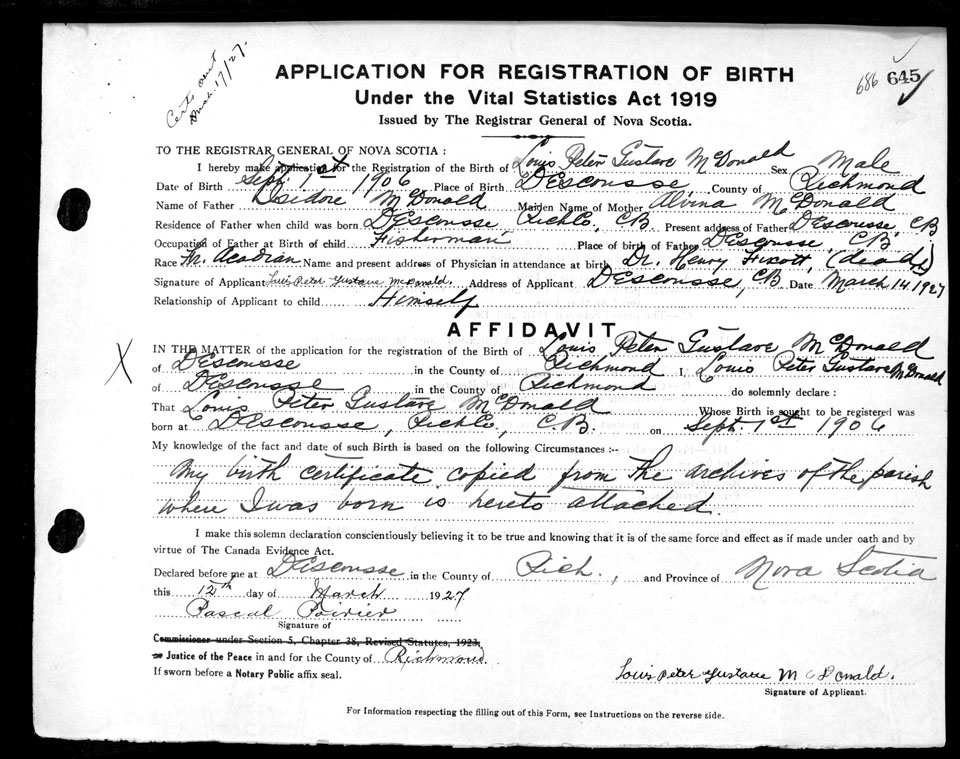 Certs sent
Mch. 17/27.
686 645
APPLICATION FOR REGISTRATION OF BIRTH
Under the Vital Statistics Act 1919
Issued by The Registrar General of Nova Scotia.
TO THE REGISTRAR GENERAL OF NOVA SCOTIA :
I hereby make application for the Registration of the Birth of Louis Peter Gustave McDonald Sex Male
Date of Birth Sept 1st 1906 Place of Birth DEscousse, County of Richmond
Name of Father Isidore McDonald Maiden Name of Mother Alvina McDonald
Residence of Father when child was born DEscousse Rich Co, CB. Present address of Father DEscousse, CB
Occupation of Father at Birth of child Fisherman Place of birth of Father DEscousse, CB
Race Fr. Acadian Name and present address of Physician in attendance at birth Dr. Henry Fixott, (dead)
Signature of Applicant Louis Peter Gustave McDonald. Address of Applicant DEscousse, CB Date March 14 1927
Relationship of Applicant to child Himself
AFFIDAVIT
X
IN THE MATTER of the application for the registration of the Birth of Louis Peter Gustave McDonald
of DEscousse in the County of Richmond I, Louis Peter Gustave McDonald
of DEscousse in the County of Richmond do solemnly declare :
That Louis Peter Gustave McDonald Whose Birth is sought to be registered was
born at DEscousse, Rich Co, C.B. on Sept. 1st 1906
My knowledge of the fact and date of such Birth is based on the following Circumstances :--
My birth certificate copied from the archives of the parish
where I was born is hereto attached.
I make this solemn declaration conscientiously believing it to be true and knowing that it is of the same force and effect as if made under oath and by
virtue of The Canada Evidence Act.
Declared before me at DEscousse in the County of Rich., and Province of Nova Scotia
this 12th day of March 1927
Pascal Poirier
Signature of
Commissioner under Section 5, Chapter 38, Revised Statutes, 1923,
or Justice of the Peace in and for the County of Richmond.
If sworn before a Notary Public affix seal.
Louis Peter Gustave McDonald.
Signature of Applicant.
For Information respecting the filling out of this Form, see Instructions on the reverse side.